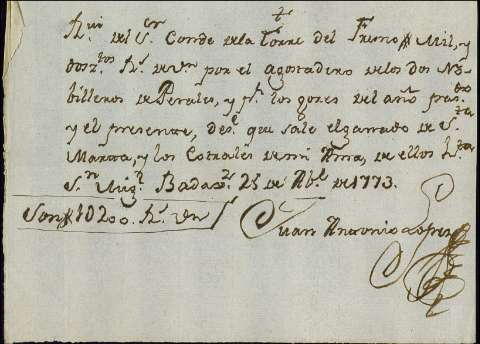 Rvi del Sr Conde de la Torre del Fresno Mil, y
dosztos Rs de vn por el agostadero de los dos No-
billeros de Perales, y pr los gozes del año pas
y el presente, desde que sale el ganado de Sta
Marta, y los Corrales de mi Ama, de ellos hta
Sn Migl Badaxz 25 de Abl de 1773.
Son 1D200. Rs vn
Juan Antonio Lopez